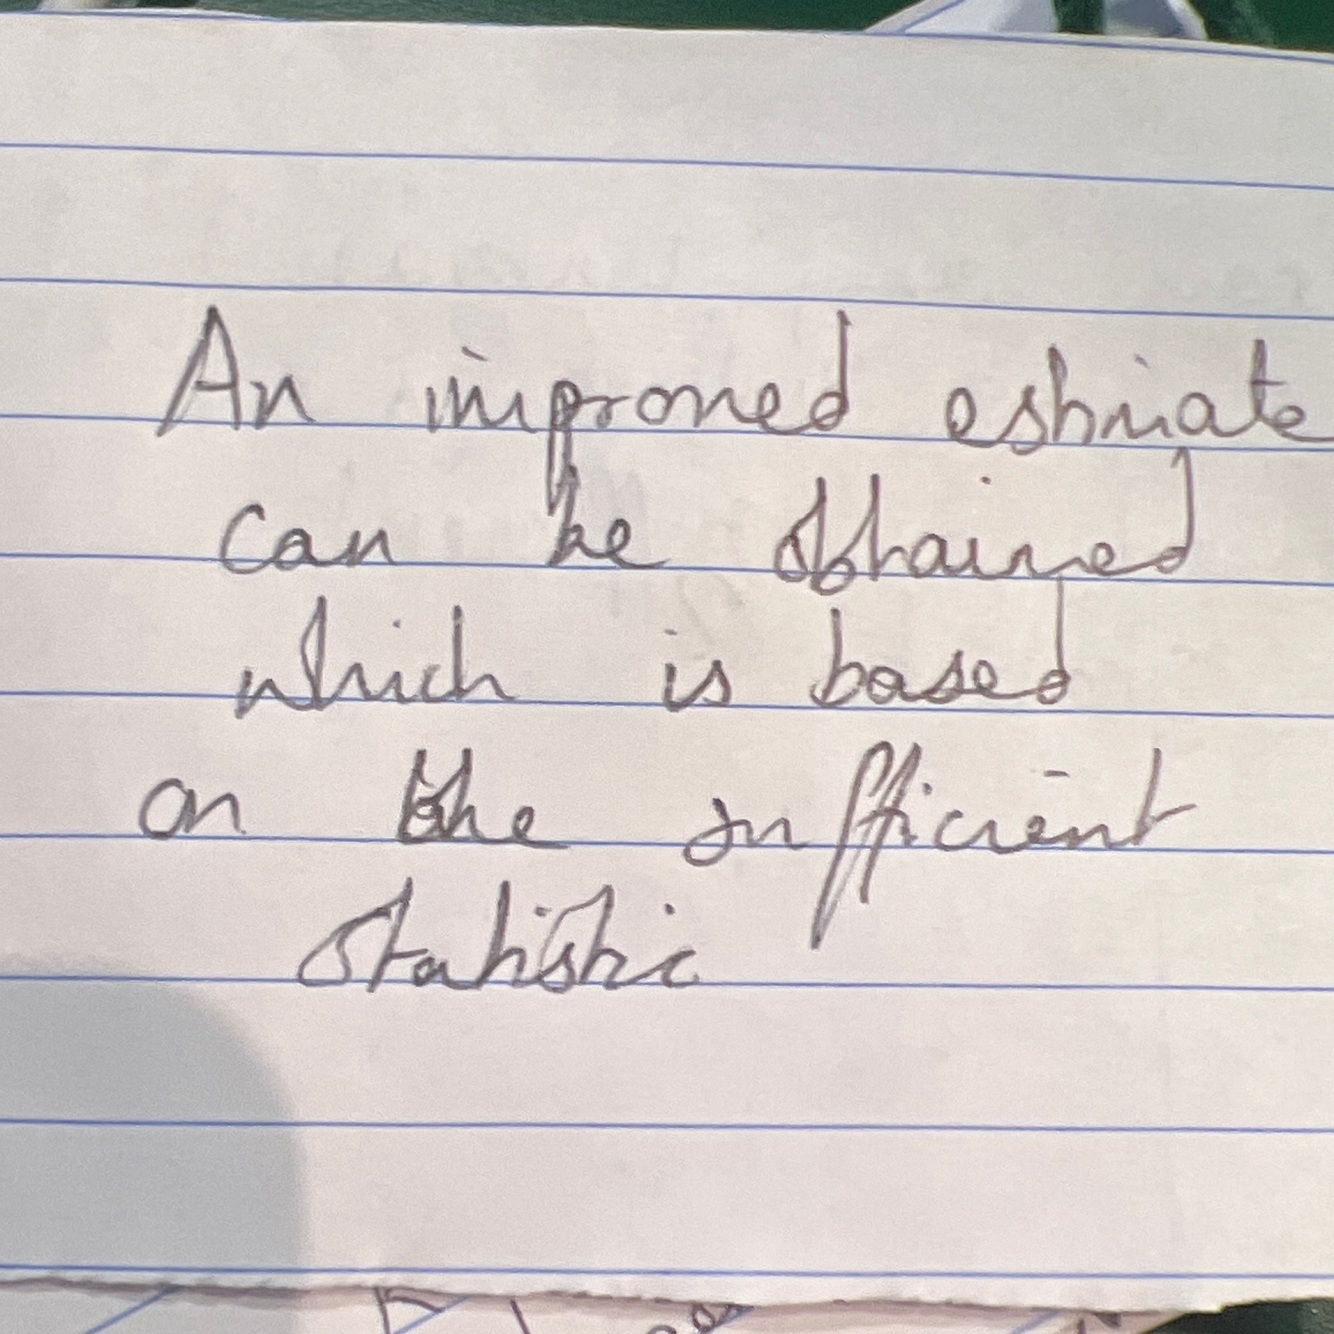 An improved estimate
can be obtained
which is based
on the sufficient
statistic